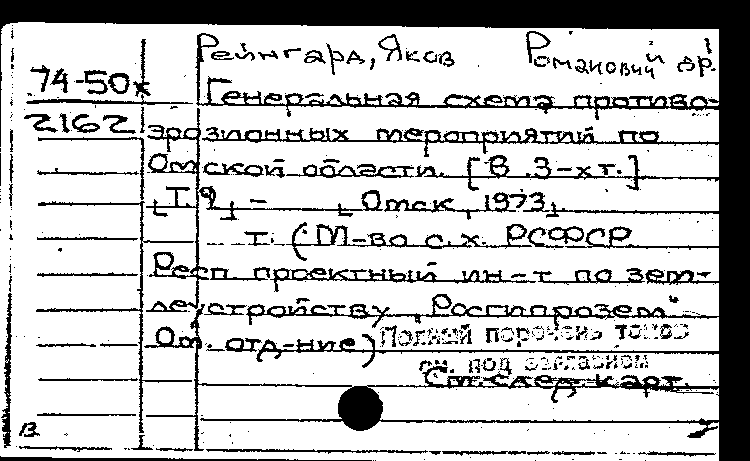 Рейнгард, Яков Романович др.
74-50к
Генеральная схема противо-
2162
эрозионных мероприятий по
Омской области. [В 3-х т.]
[Т. ] - [Омск, 1973].
т. (М-во с.х. РСФСР
Респ проектный ин-т по зем-
леустройству "Росгипрозем"
Ом. отд-ние) Полный перечень томов
см. под заглавием
См. след. карт.